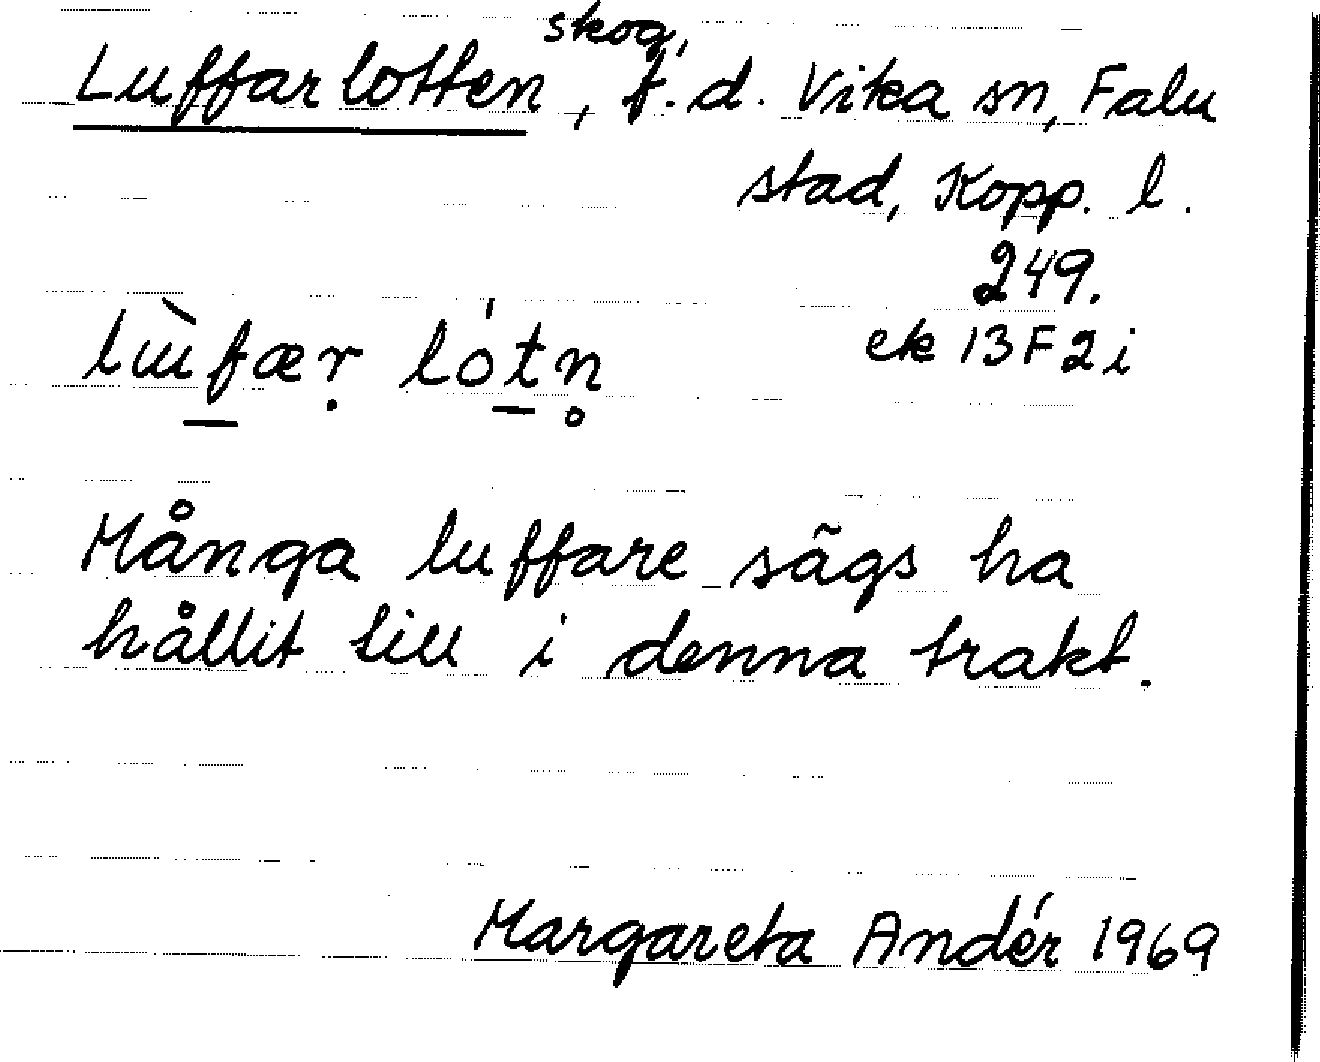 skog,
Luffarlotten, f.d. Vika sn, Falu
stad, Kopp. l.
249.
ek 13F2i
lɯ̀fær̤ lótn̥
Många luffare sägs ha
hållit till i denna trakt.
Margareta Andér 1969